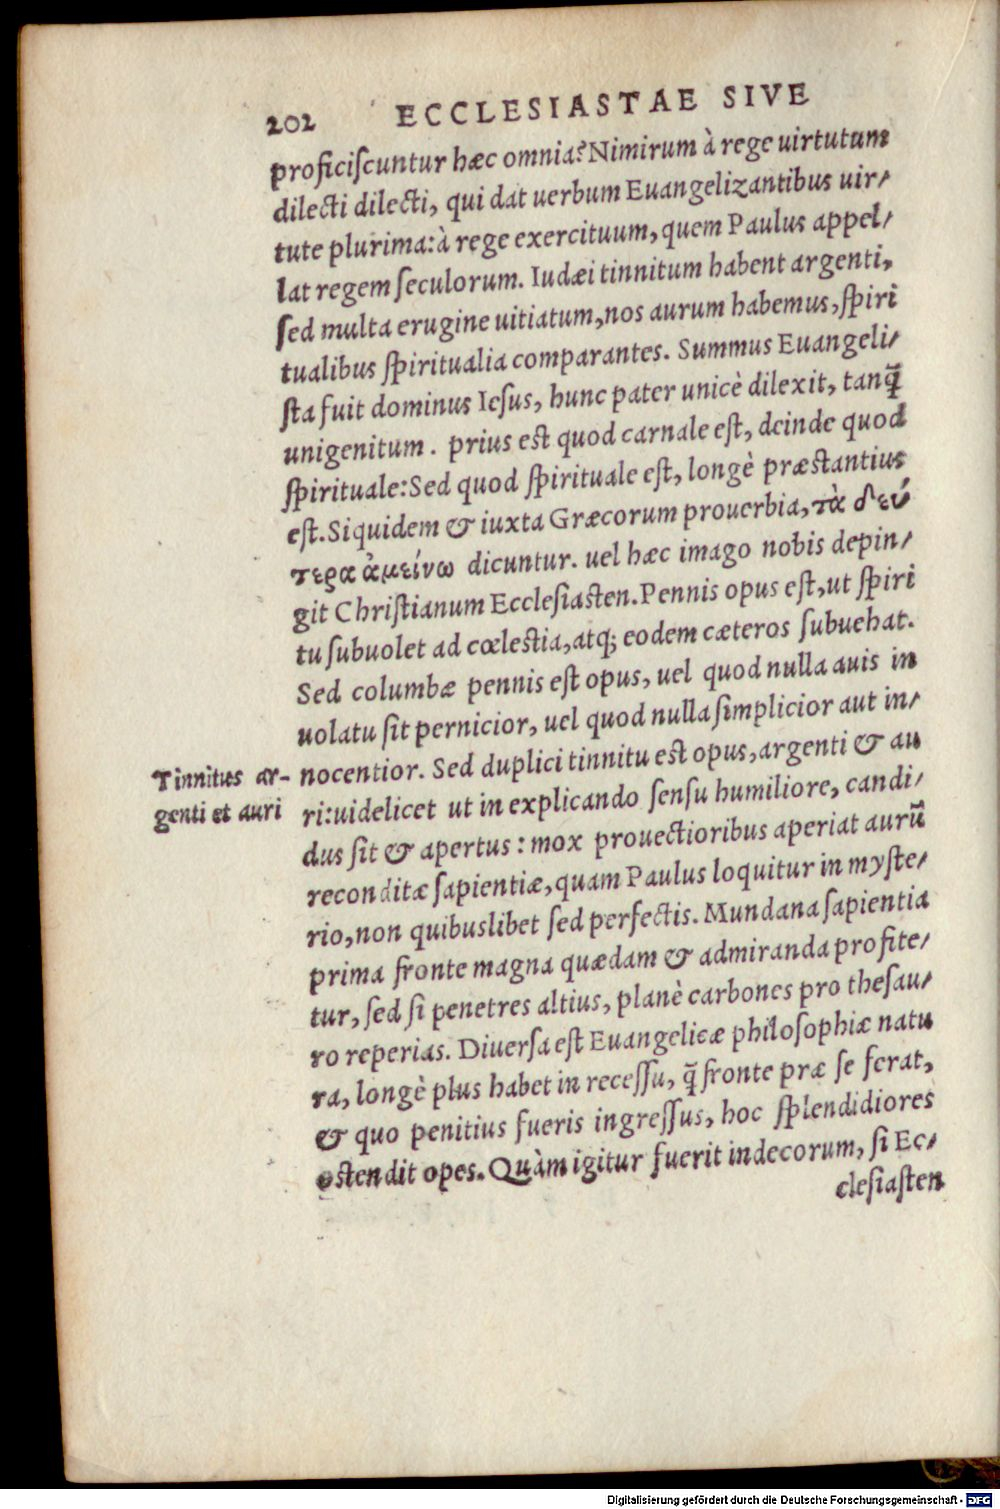 202 ECCLESIASTAE SIVE
proficiſcuntur hæc omnia? Nimirum à rege uirtutum
dilecti dilecti, qui dat uerbum Euangelizantibus uir-
tute plurima: à rege exercituum, quem Paulus appel-
lat regem ſeculorum. Iudæi tinnitum habent argenti,
ſed multa erugine uitiatum, nos aurum habemus, ſpiri
tualibus ſpiritualia comparantes. Summus Euangeli-
ſta fuit dominus Ieſus, hunc pater unicè dilexit, tanq̃
unigenitum. prius eſt quod carnale eſt, deinde quod
ſpirituale: Sed quod ſpirituale eſt, longè præstantius
eſt. Siquidem & iuxta Græcorum prouerbia, τὰ δεύ
τερα ἀμείνω dicuntur. uel hæc imago nobis depin-
git Chriſtianum Eccleſiaſten. Pennis opus eſt, ut ſpiri
tu ſubuolet ad cœleſtia, atq; eodem cæteros ſubuehat.
Sed columbæ pennis eſt opus, uel quod nulla auis in
uolatu ſit pernicior, uel quod nulla ſimplicior aut in-
nocentior. Sed duplici tinnitu eſt opus, argenti & au
Tinnitus ar-
genti et auri
ri: uidelicet ut in explicando ſenſu humiliore, candi-
dus ſit & apertus: mox prouectioribus aperiat aurũ
reconditæ ſapientiæ, quam Paulus loquitur in myſte-
rio, non quibuslibet ſed perfectis. Mundana ſapientia
prima fronte magna quædam & admiranda profite-
tur, ſed ſi penetres altius, planè carbones pro theſau-
ro reperias. Diuerſa eſt Euangelicæ philoſophiæ natu
ra, longè plus habet in receſſu, q̃ fronte præ ſe ferat,
& quo penitius fueris ingreſſus, hoc ſplendidiores
oſtendit opes. Quàm igitur fuerit indecorum, ſi Ec-
cleſiaſten
Digitalisierung gefördert durch die Deutsche Forschungsgemeinschaft - DFG